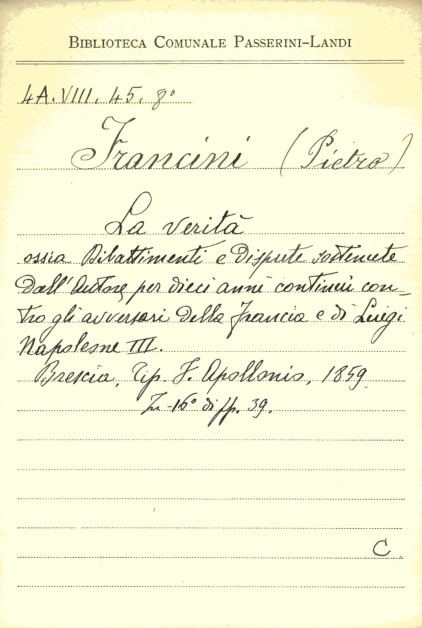 BIBLIOTECA COMUNALE PASSERINI-LANDI
4A.VIII. 45. 8°
Francini (Pietro)
La verità
ossia Dibattimenti e dispute sostenute
dall'Autore per dieci anni continui con-
tro gli avversari della Francia e di Luigi
Napoleone III.
Brescia, Tip. F. Apollonio, 1859.
In-16° di pp. 39.
C